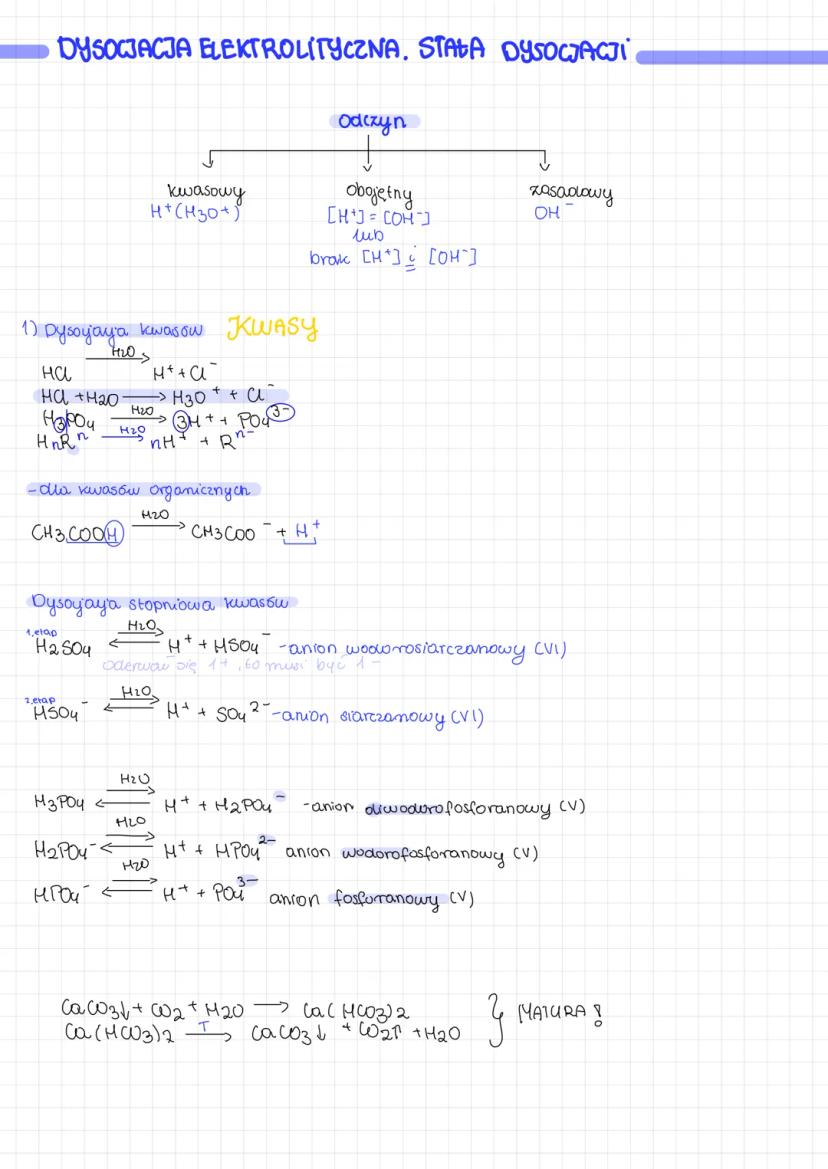 DYSOCJACJA ELEKTROLITYCZNA. STAŁA DYSOCJACJI
Odczyn
kwasowy obojętny zasadowy
H⁺(H3O⁺) [H⁺] = [OH⁻] OH⁻
lub
brak [H⁺] i [OH⁻]
1) Dysocjacja kwasów KWASY
HCl —H2O→ H⁺ + Cl⁻
HCl + H2O → H3O⁺ + Cl⁻
H3PO4 —H2O→ 3H⁺ + PO4³⁻
HnRⁿ —H2O→ nH⁺ + Rⁿ⁻
- dla kwasów organicznych
CH3COOH —H2O→ CH3COO⁻ + H⁺
Dysocjacja stopniowa kwasów
1.etap
H2SO4 ⇌ (H2O) H⁺ + HSO4⁻ - anion wodorosiarczanowy (VI)
oderwał się 1+, to musi być 1-
2.etap
HSO4⁻ ⇌ (H2O) H⁺ + SO4²⁻ - anion siarczanowy (VI)
H3PO4 ⇌ (H2O) H⁺ + H2PO4⁻ - anion diwodorofosforanowy (V)
H2PO4⁻ ⇌ (H2O) H⁺ + HPO4²⁻ anion wodorofosforanowy (V)
HPO4⁻ ⇌ (H2O) H⁺ + PO4³⁻ anion fosforanowy (V)
CaCO3↓ + CO2 + H2O → Ca(HCO3)2
Ca(HCO3)2 —T→ CaCO3↓ + CO2↑ + H2O } MATURA!